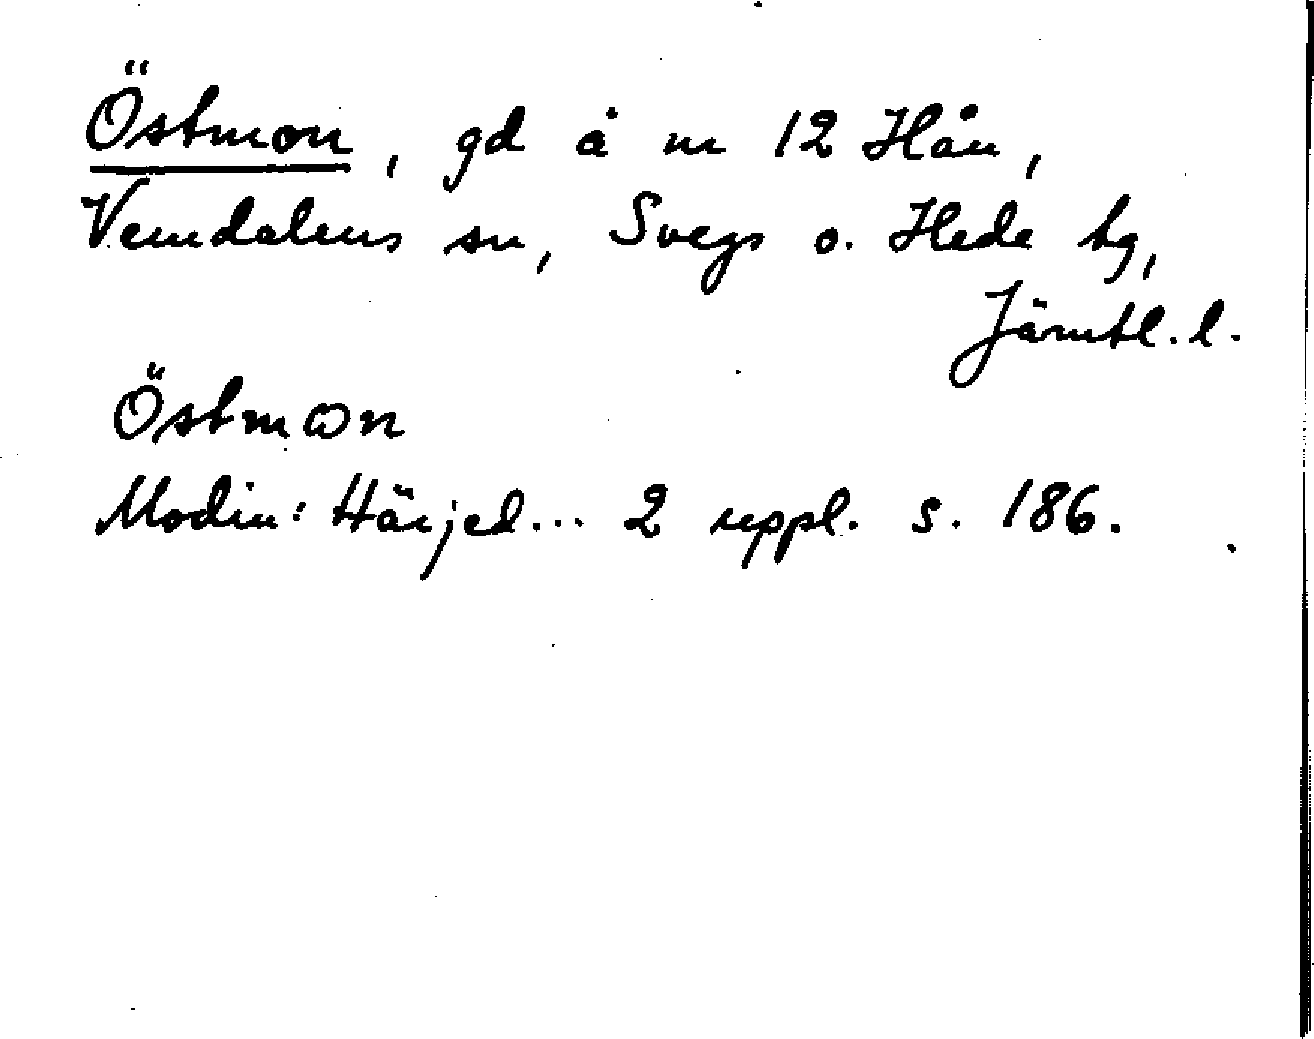 Östmon, gd å nr 12 Hån,
Vemdalens sn, Svegs o. Hede tg,
Jämtl. l.
Östmon
Modin: Härjed... 2 uppl. s. 186.